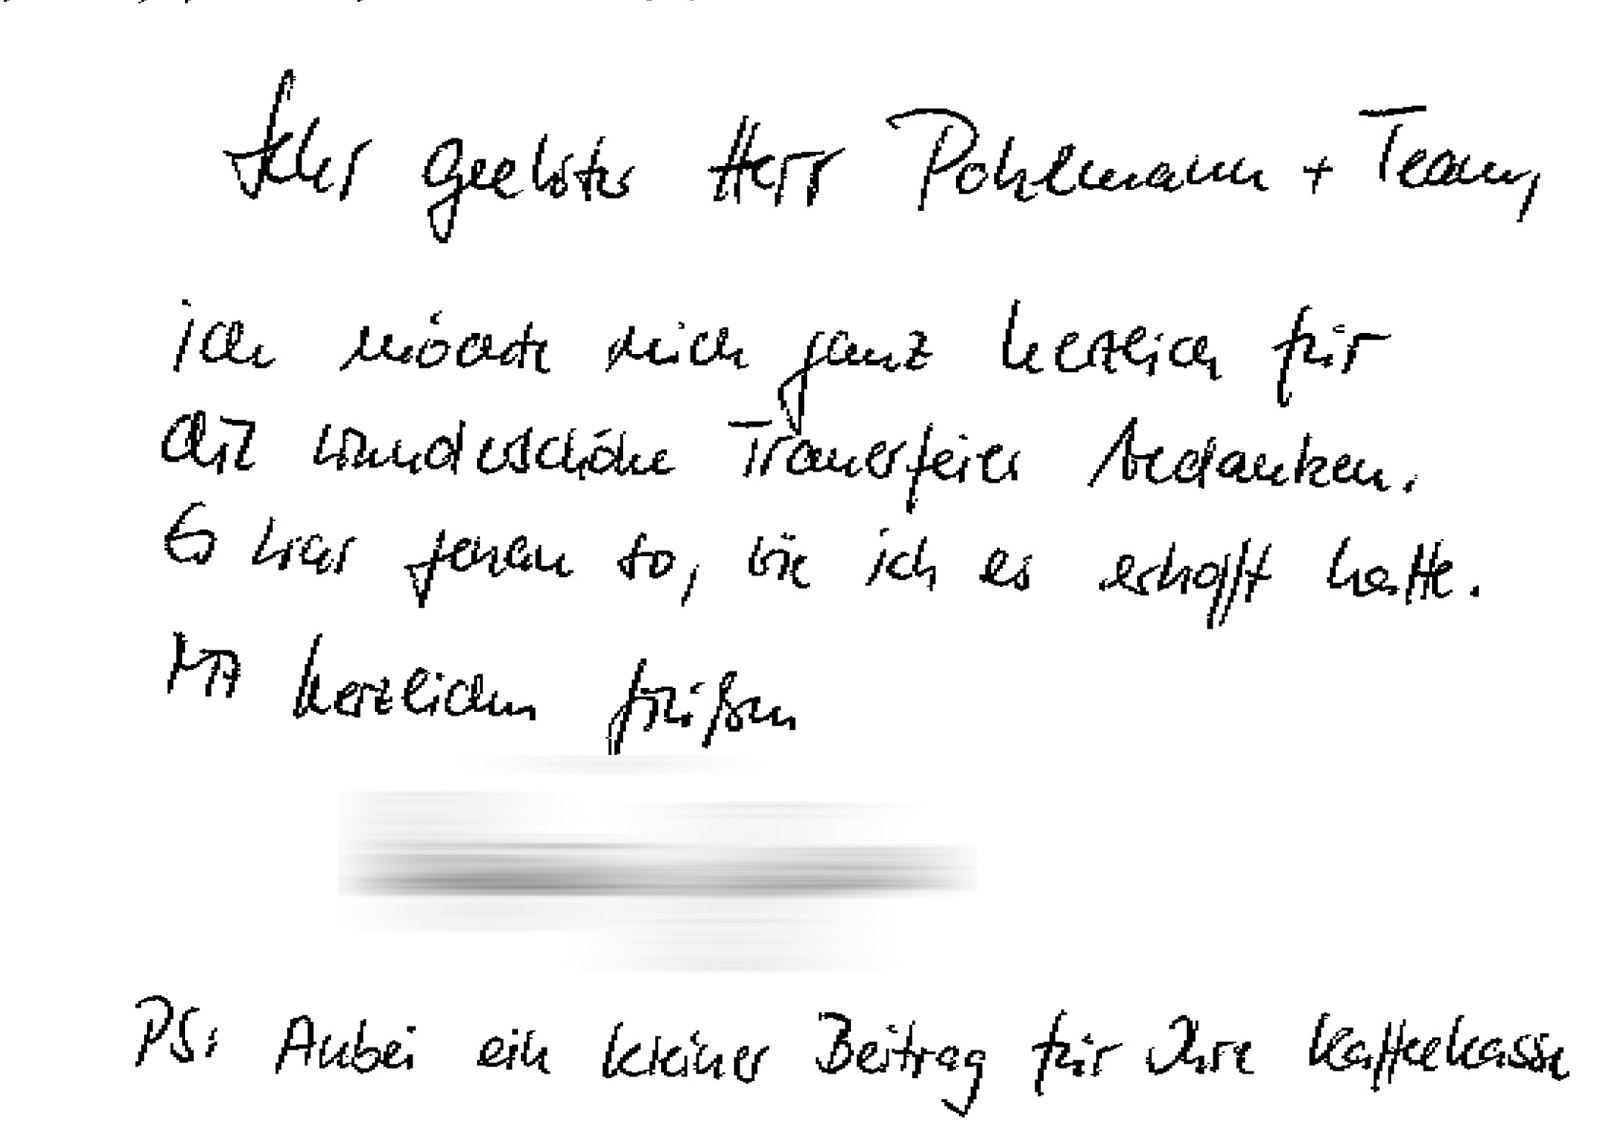 Sehr geehrter Herr Pohlmann + Team,
ich möchte mich ganz herzlich für
die wunderschöne Trauerfeier bedanken.
Es war genau so, wie ich es erhofft hatte.
Mit herzlichen Grüßen
PS: Anbei ein kleiner Beitrag für Ihre Kaffeekasse